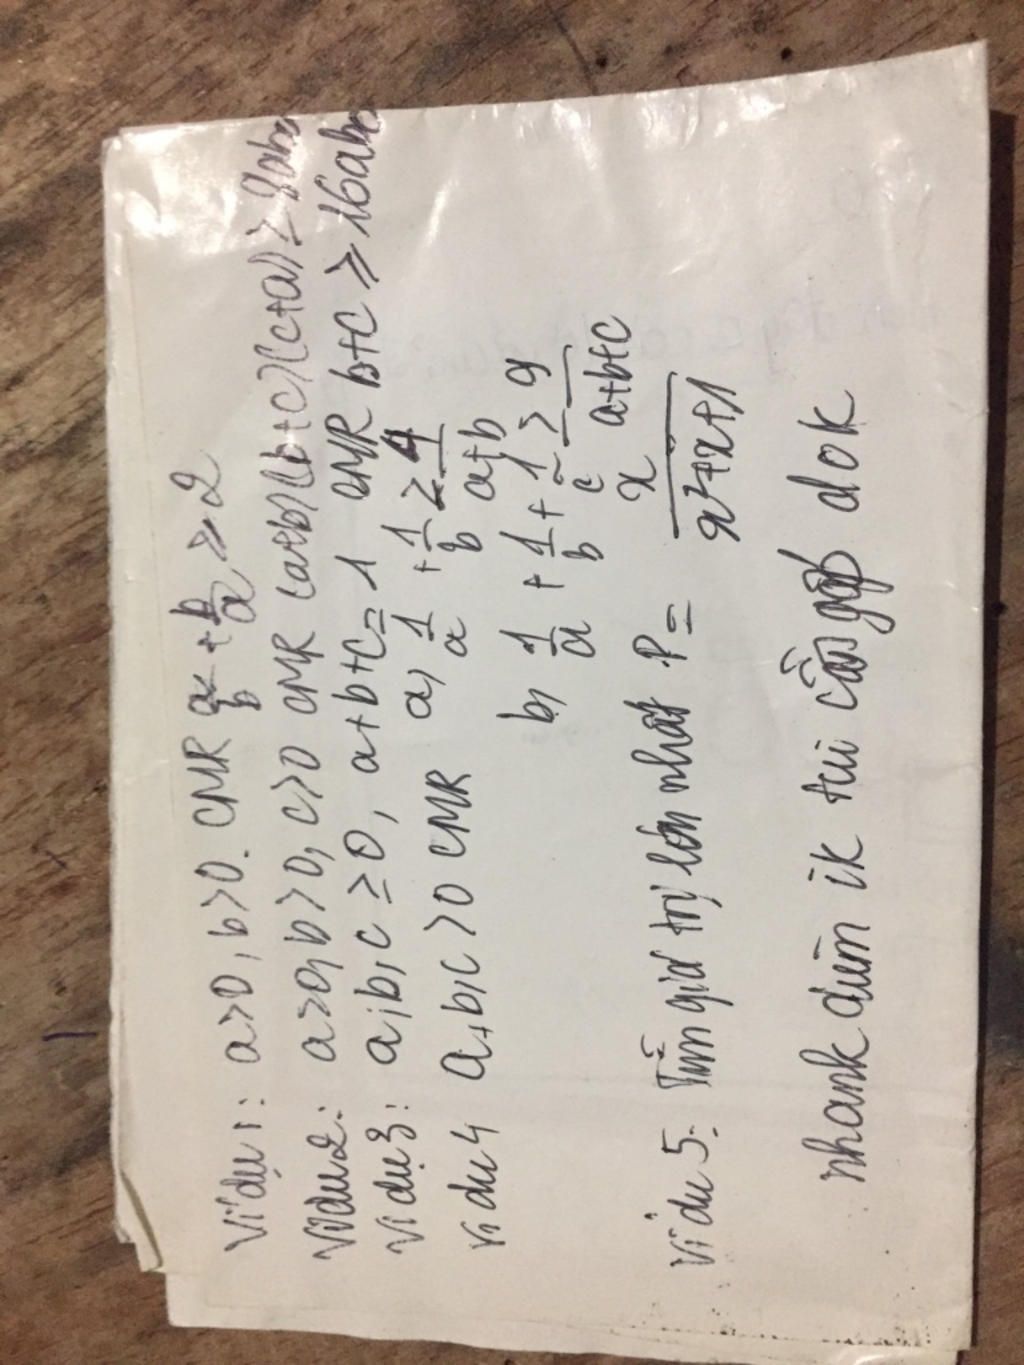 Ví dụ 1: a>0, b>0. CMR a/b + b/a ≥ 2
Ví dụ 2: a>0, b>0, c>0 CMR (a+b)(b+c)(c+a) ≥ 8abc
Ví dụ 3: a, b, c ≥ 0, a+b+c=1 CMR b+c ≥ 16abc
Ví dụ 4 a, b, c >0 CMR a, 1/a + 1/b ≥ 4/a+b
b, 1/a + 1/b + 1/c ≥ 9/a+b+c
Ví dụ 5: Tìm giá trị lớn nhất P = x/x²+x+1
nhank dùm ik tui cần gấp dok